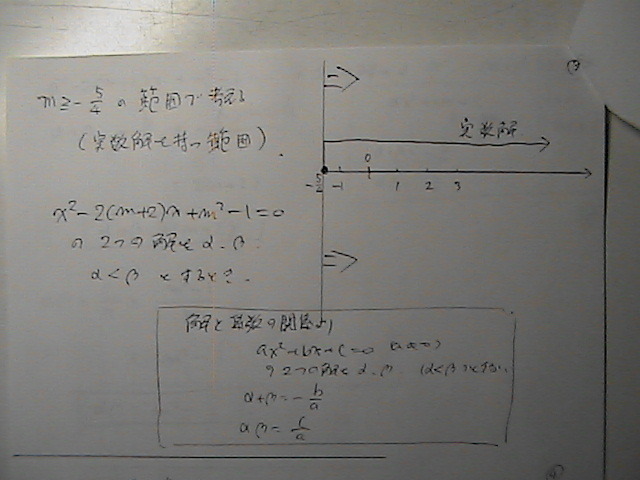 m≧-5/4 の範囲で考える
(実数解を持つ範囲).
x²-2(m+2)x+m²-1=0
の2つの解をα、β
α<βとすると?.
③
実数解
0
-5/4 -1 1 2 3
解と係数の関係より
ax²+bx+c=0 (a≠0)
の2つの解をα、β (α<βとする).
α+β=-b/a
αβ=c/a
④